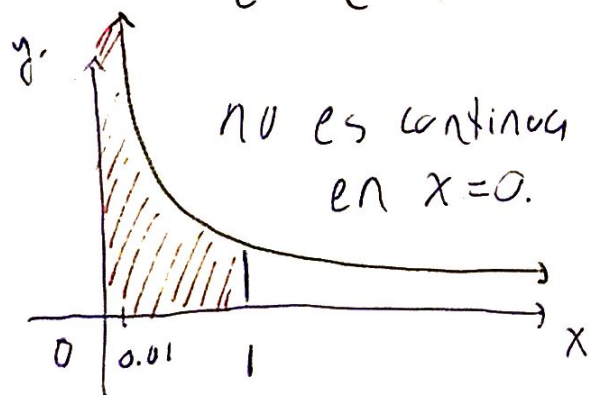 y.
no es continua
en x=0.
0 0.01 1 x